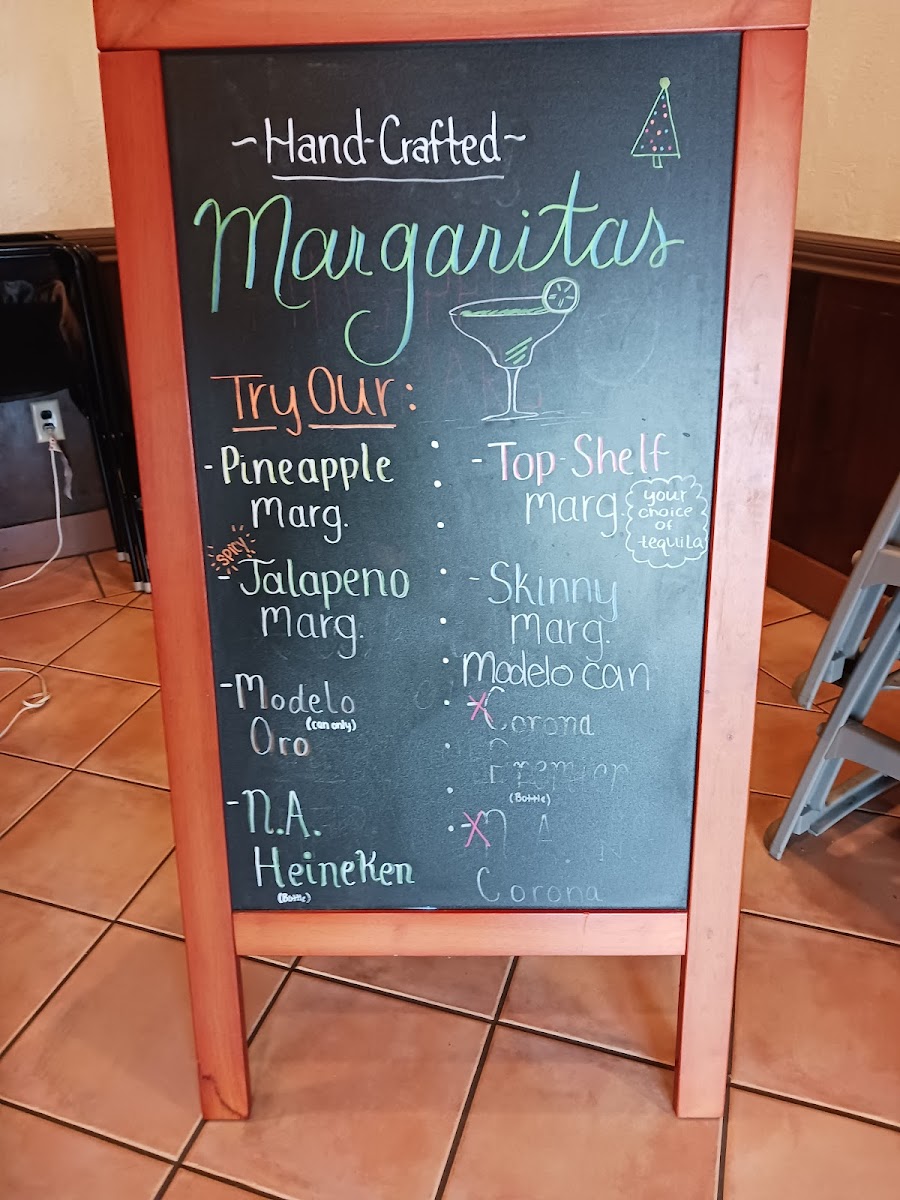 ~Hand-Crafted~
Margaritas
Try Our:
-Pineapple
Marg.
spicy
-Jalapeno
Marg.
-Modelo
(can only)
Oro
-N.A.
Heineken
(Bottle)
-Top-Shelf
Marg.
your
choice
of
tequila
-Skinny
Marg.
Modelo can
Corona
Premier
(Bottle)
-N.A.
Corona